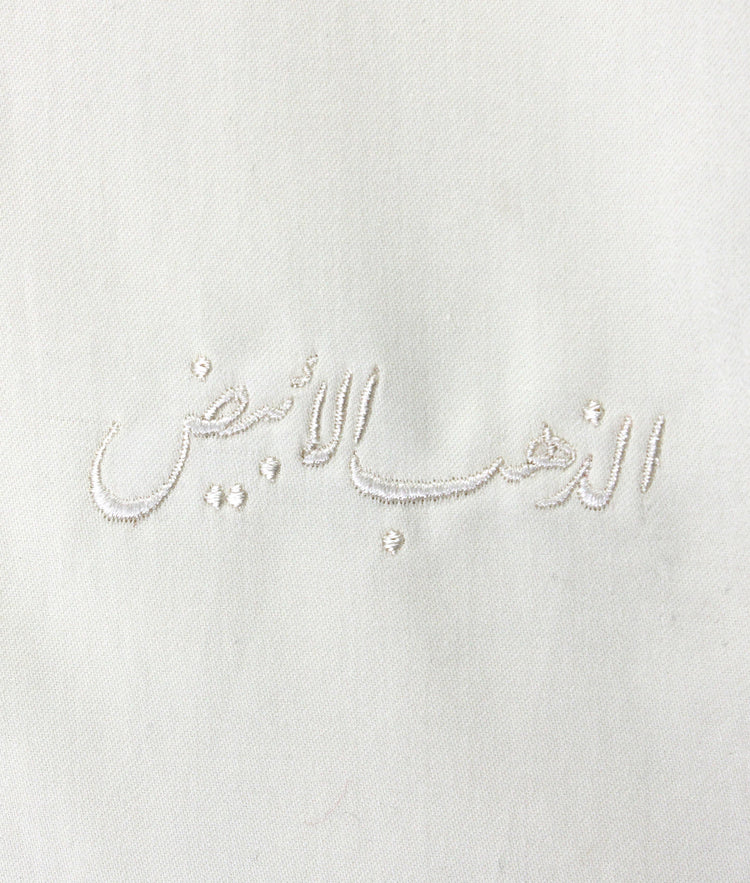 الذهب الأبيض